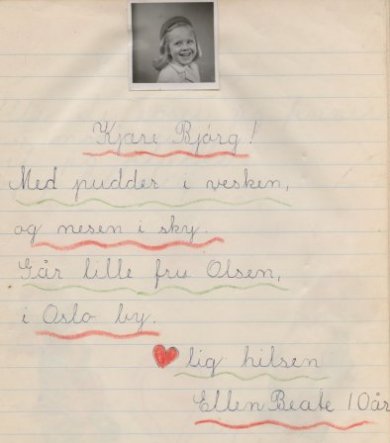 Kjære Bjørg!
Med pudder i vesken,
og nesen i sky.
Går lille fru Olsen,
i Oslo by.
❤lig hilsen
Ellen Beate 10år